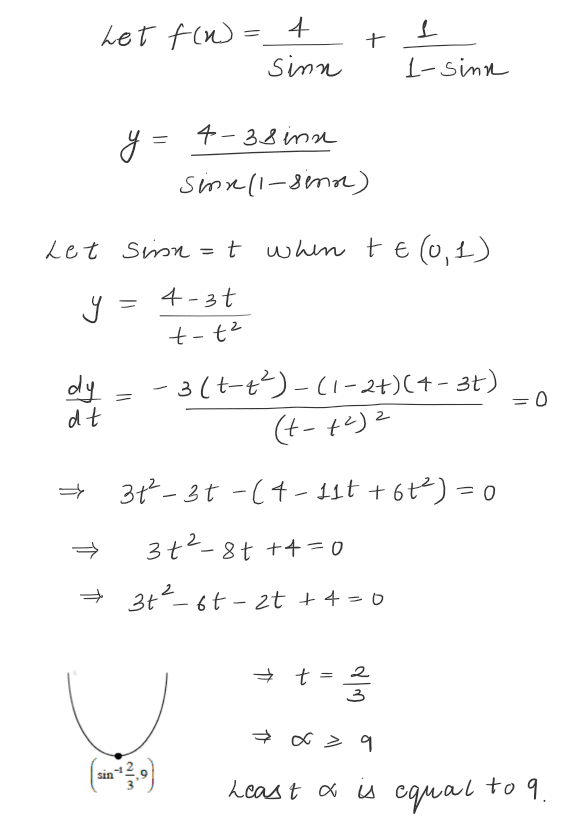 Let f(x) = 4/sinx + 1/(1-sinx)
y = (4-3sinx)/(sinx(1-sinx))
Let sinx = t when t ∈ (0,1)
y = (4-3t)/(t-t²)
dy/dt = (-3(t-t²)-(1-2t)(4-3t))/(t-t²)² = 0
⇒ 3t²-3t-(4-11t+6t²) = 0
⇒ 3t²-8t+4=0
⇒ 3t²-6t-2t+4=0
⇒ t = 2/3
⇒ α ≥ 9
(sin⁻¹ 2/3, 9)
Least α is equal to 9.